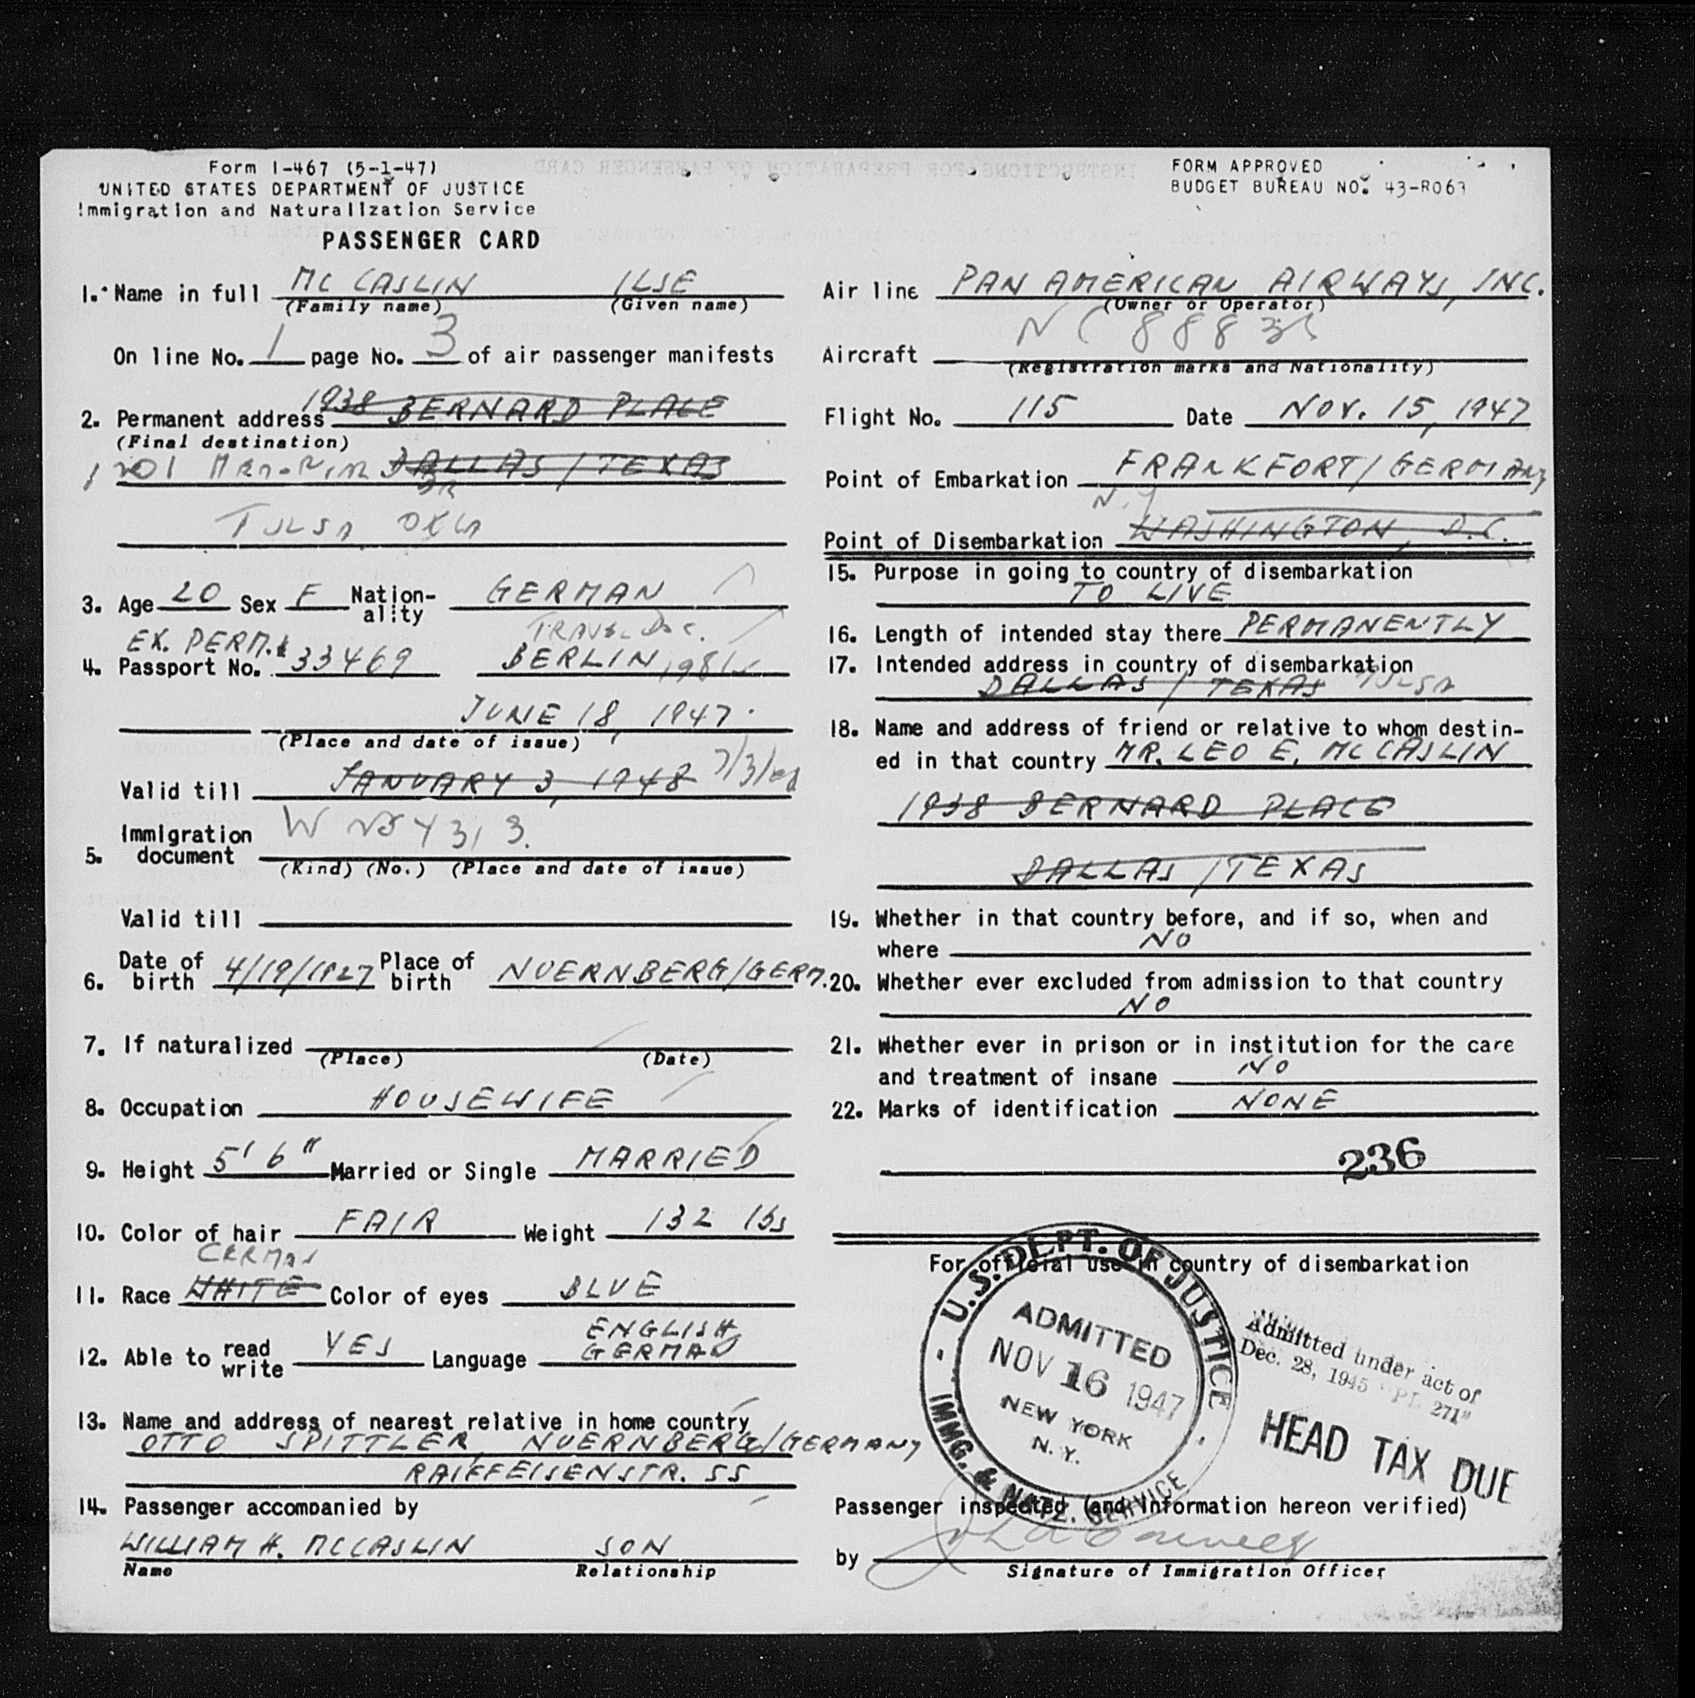 Form I-467 (5-1-47)
UNITED STATES DEPARTMENT OF JUSTICE
Immigration and Naturalization Service
PASSENGER CARD
FORM APPROVED
BUDGET BUREAU NO. 43-R063
1. Name in full MC CASLIN ILSE
(Family name) (Given name)
On line No. 1 page No. 3 of air passenger manifests
2. Permanent address 1938 BERNARD PLACE
(Final destination)
DALLAS / TEXAS
TULSA OKLA
3. Age 20 Sex F Nation-ality GERMAN
EX. PERM. TRAVEL DOC.
4. Passport No. 33469 BERLIN
JUNE 18, 1947.
(Place and date of issue)
Valid till JANUARY 3, 1948
5. Immigration document
(Kind) (No.) (Place and date of issue)
Valid till
6. Date of birth 4/19/1927 Place of birth NUERNBERG/GERM.
7. If naturalized
(Place) (Date)
8. Occupation HOUSEWIFE
9. Height 5' 6" Married or Single MARRIED
10. Color of hair FAIR Weight 132 lbs
GERMAN
11. Race WHITE Color of eyes BLUE
12. Able to read write YES Language ENGLISH GERMAN
13. Name and address of nearest relative in home country
OTTO SPITTLER, NUERNBERG/GERMANY
RAIFFEISENSTR. 55
14. Passenger accompanied by
WILLIAM H. MCCASLIN SON
Name Relationship
Air line PAN AMERICAN AIRWAYS, INC.
(Owner or Operator)
Aircraft
(Registration marks and Nationality)
Flight No. 115 Date NOV. 15, 1947
Point of Embarkation FRANKFORT/GERMANY
N.Y.
Point of Disembarkation WASHINGTON, D.C.
15. Purpose in going to country of disembarkation
TO LIVE
16. Length of intended stay there PERMANENTLY
17. Intended address in country of disembarkation
DALLAS / TEXAS TULSA
18. Name and address of friend or relative to whom destin-
ed in that country MR. LEO E. MCCASLIN
1938 BERNARD PLACE
DALLAS / TEXAS
19. Whether in that country before, and if so, when and
where NO
20. Whether ever excluded from admission to that country
NO
21. Whether ever in prison or in institution for the care
and treatment of insane NO
22. Marks of identification NONE
236
For official use in country of disembarkation
U.S. DEPT. OF JUSTICE
ADMITTED
NOV 16 1947
NEW YORK
N.Y.
IMMG. & NATZ. SERVICE
Admitted under act of
Dec. 28, 1945 "PL 271"
HEAD TAX DUE
Passenger inspected (and information hereon verified)
by
Signature of Immigration Officer